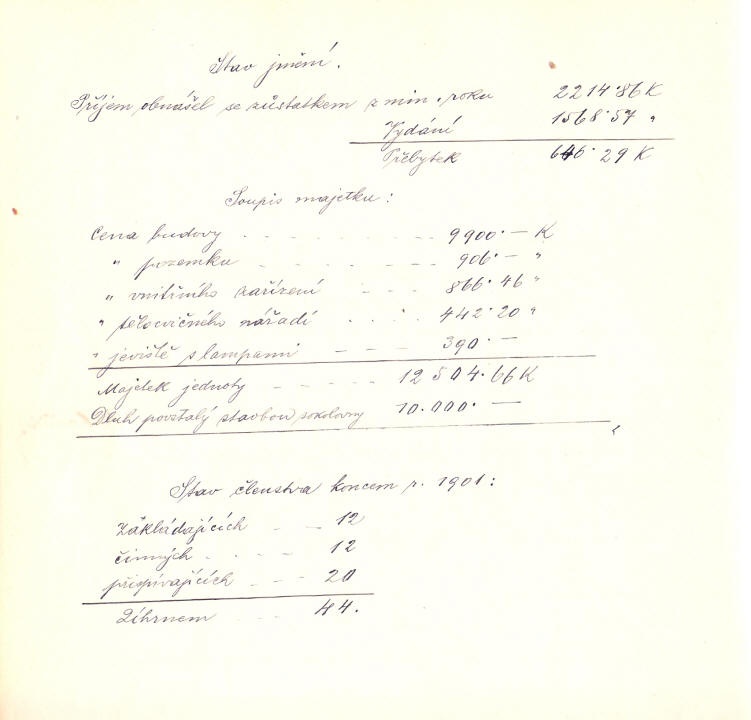 Stav jmění.
Příjem obnášel se zůstatkem z min. roku 2214·86 K
Vydání 1568·57 "
Přebytek 646·29 K
Soupis majetku:
Cena budovy . - - - - - - 9900·— K
" pozemku - - - - - 906·— "
" vnitřního zařízení - - - 866·46 "
" tělocvičného nářadí . . . 442·20 "
" jeviště s lampami - - - 390·—
Majetek jednoty - - - - - 12504·66 K
Dluh povstalý stavbou sokolovny 10.000·—
Stav členstva koncem r. 1901:
Zakládajících - - 12
činných - . - - 12
přispívajících - - - 20
Úhrnem - - - 44.